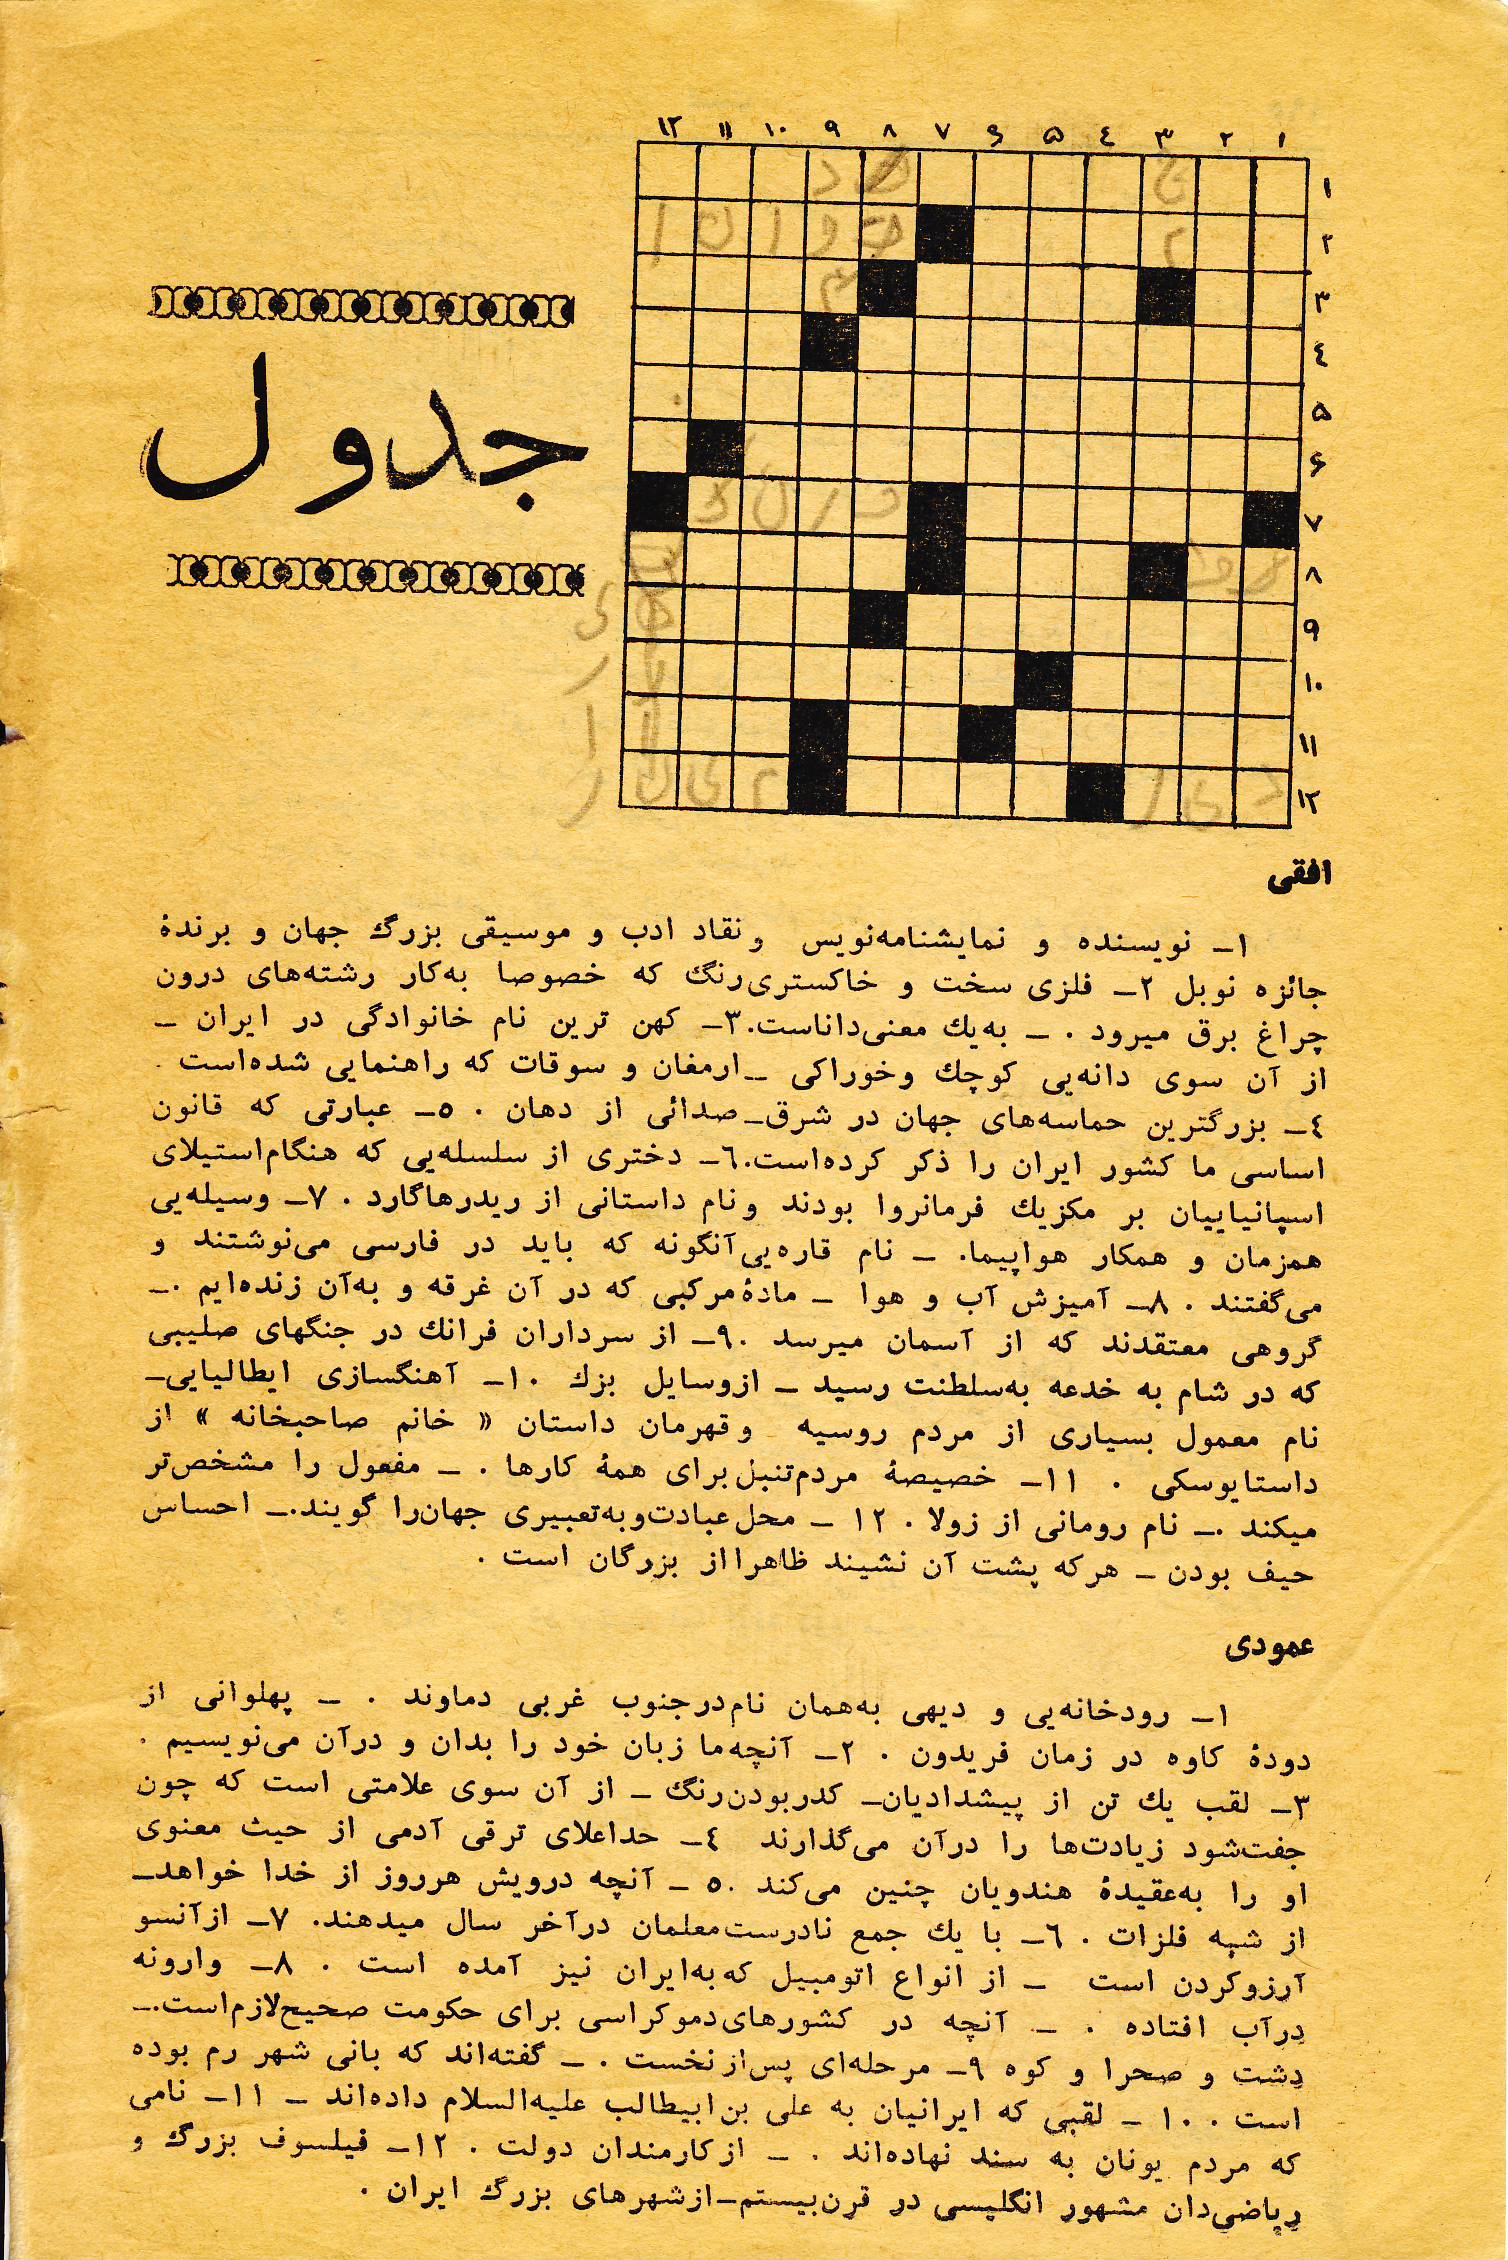 ۱۲ ۱۱ ۱۰ ۹ ۸ ۷ ۶ ۵ ٤ ۳ ۲ ۱
۱
۲
۳
٤
۵
۶
۷
۸
۹
۱۰
۱۱
۱۲
جدول
افقی
۱ـ نویسنده و نمایشنامه‌نویس و نقاد ادب و موسیقی بزرگ جهان و برندهٔ
جائزه نوبل ۲ـ فلزی سخت و خاکستری‌رنگ که خصوصا به‌کار رشته‌های درون
چراغ برق میرود . ـ به‌یك معنی‌داناست. ۳ـ کهن ترین نام خانوادگی در ایران ـ
از آن سوی دانه‌یی کوچك وخوراکی ـ ارمغان و سوقات که راهنمایی شده‌است .
٤ـ بزرگترین حماسه‌های جهان در شرق ـ صدائی از دهان . ٥ـ عبارتی که قانون
اساسی ما کشور ایران را ذکر کرده‌است. ٦ـ دختری از سلسله‌یی که هنگام‌استیلای
اسپانیاییان بر مکزیك فرمانروا بودند ونام داستانی از ریدرهاگارد . ۷ـ وسیله‌یی
همزمان و همکار هواپیما. ـ نام قاره‌یی‌آنگونه که باید در فارسی می‌نوشتند و
می‌گفتند . ۸ـ آمیزش آب و هوا ـ مادهٔ مرکبی که در آن غرقه و به‌آن زنده‌ایم . ـ
گروهی معتقدند که از آسمان میرسد . ۹ـ از سرداران فرانك در جنگهای صلیبی
که در شام به خدعه به‌سلطنت رسید ـ ازوسایل بزك . ۱۰ـ آهنگسازی ایطالیایی ـ
نام معمول بسیاری از مردم روسیه وقهرمان داستان « خانم صاحبخانه » از
داستایوسکی . ۱۱ـ خصیصهٔ مردم‌تنبل برای همهٔ کارها . ـ مفعول را مشخص‌تر
میکند . ـ نام رومانی از زولا . ۱۲ ـ محل عبادت‌وبه‌تعبیری جهان‌را گویند. ـ احساس
حیف بودن ـ هرکه پشت آن نشیند ظاهرا از بزرگان است .
عمودی
۱ـ رودخانه‌یی و دیهی به‌همان نام‌درجنوب غربی دماوند . ـ پهلوانی از
دودهٔ کاوه در زمان فریدون . ۲ـ آنچه‌ما زبان خود را بدان و درآن می‌نویسیم .
۳ـ لقب یك تن از پیشدادیان ـ کدربودن‌رنگ ـ از آن سوی علامتی است که چون
جفت‌شود زیادت‌ها را درآن می‌گذارند ٤ـ حداعلای ترقی آدمی از حیث معنوی
او را به‌عقیدهٔ هندویان چنین می‌کند . ٥ ـ آنچه درویش هرروز از خدا خواهد ـ
از شبه فلزات . ٦ـ با یك جمع نادرست‌معلمان درآخر سال میدهند. ۷ـ ازآنسو
آرزوکردن است ـ از انواع اتومبیل که‌به‌ایران نیز آمده است . ۸ـ وارونه
درآب افتاده . ـ آنچه در کشورهای‌دموکراسی برای حکومت صحیح‌لازم‌است. ـ
دشت و صحرا و کوه ۹ـ مرحله‌ای پس‌از نخست . ـ گفته‌اند که بانی شهر رم بوده
است . ۱۰ ـ لقبی که ایرانیان به علی بن‌ابیطالب علیه‌السلام داده‌اند ـ ۱۱ـ نامی
که مردم یونان به سند نهاده‌اند . ـ ازکارمندان دولت . ۱۲ـ فیلسوف بزرگ و
ریاضی‌دان مشهور انگلیسی در قرن‌بیستم ـ ازشهرهای بزرگ ایران .